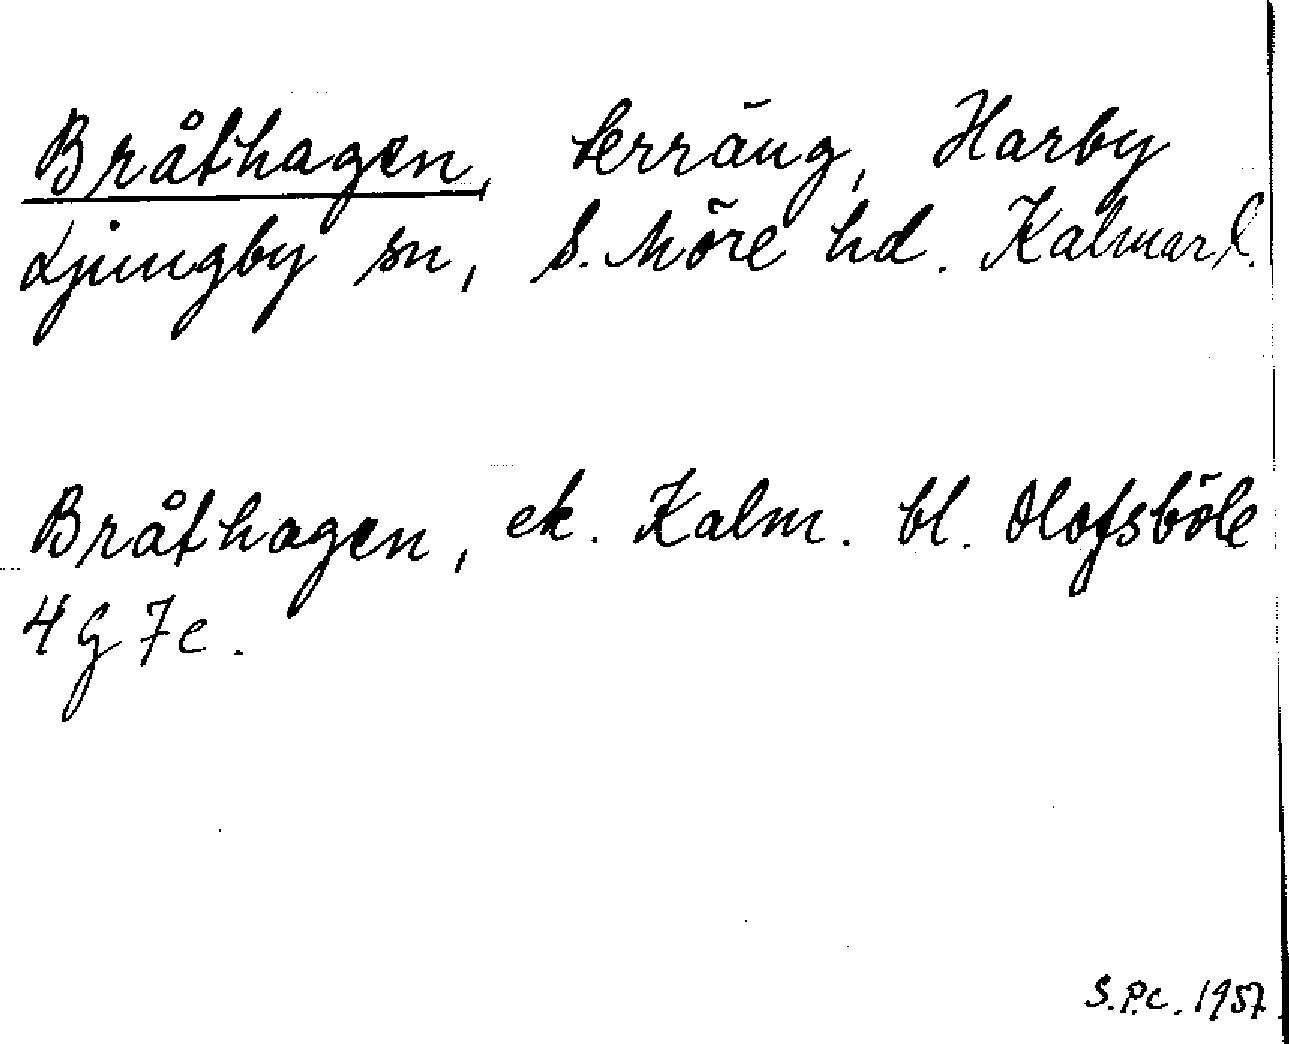 Bråthagen, terräng, Harby
Ljungby sn, S. Möre hd. Kalmar l.
Bråthagen, ek. Kalm. bl. Olofsböle
4 G 7e.
S.P.C. 1957